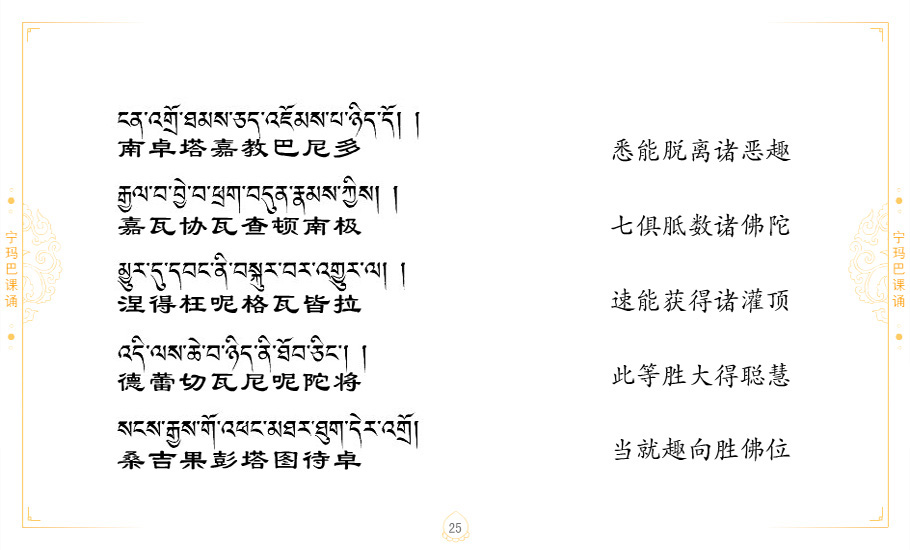 ངན་འགྲོ་ཐམས་ཅད་འཇོམས་པ་ཉིད་དོ། །
南卓塔嘉教巴尼多
悉能脱离诸恶趣
རྒྱལ་བ་བྱེ་བ་ཕྲག་བདུན་རྣམས་ཀྱིས། །
嘉瓦协瓦查顿南极
七俱胝数诸佛陀
མྱུར་དུ་དབང་ནི་བསྐུར་བར་འགྱུར་ལ། །
涅得枉呢格瓦皆拉
速能获得诸灌顶
འདི་ལས་ཆེ་བ་ཉིད་ནི་ཐོབ་ཅིང་། །
德蕾切瓦尼呢陀将
此等胜大得聪慧
སངས་རྒྱས་གོ་འཕང་མཐར་ཐུག་དེར་འགྲོ།
桑吉果彭塔图待卓
当就趣向胜佛位
宁玛巴课诵
宁玛巴课诵
25